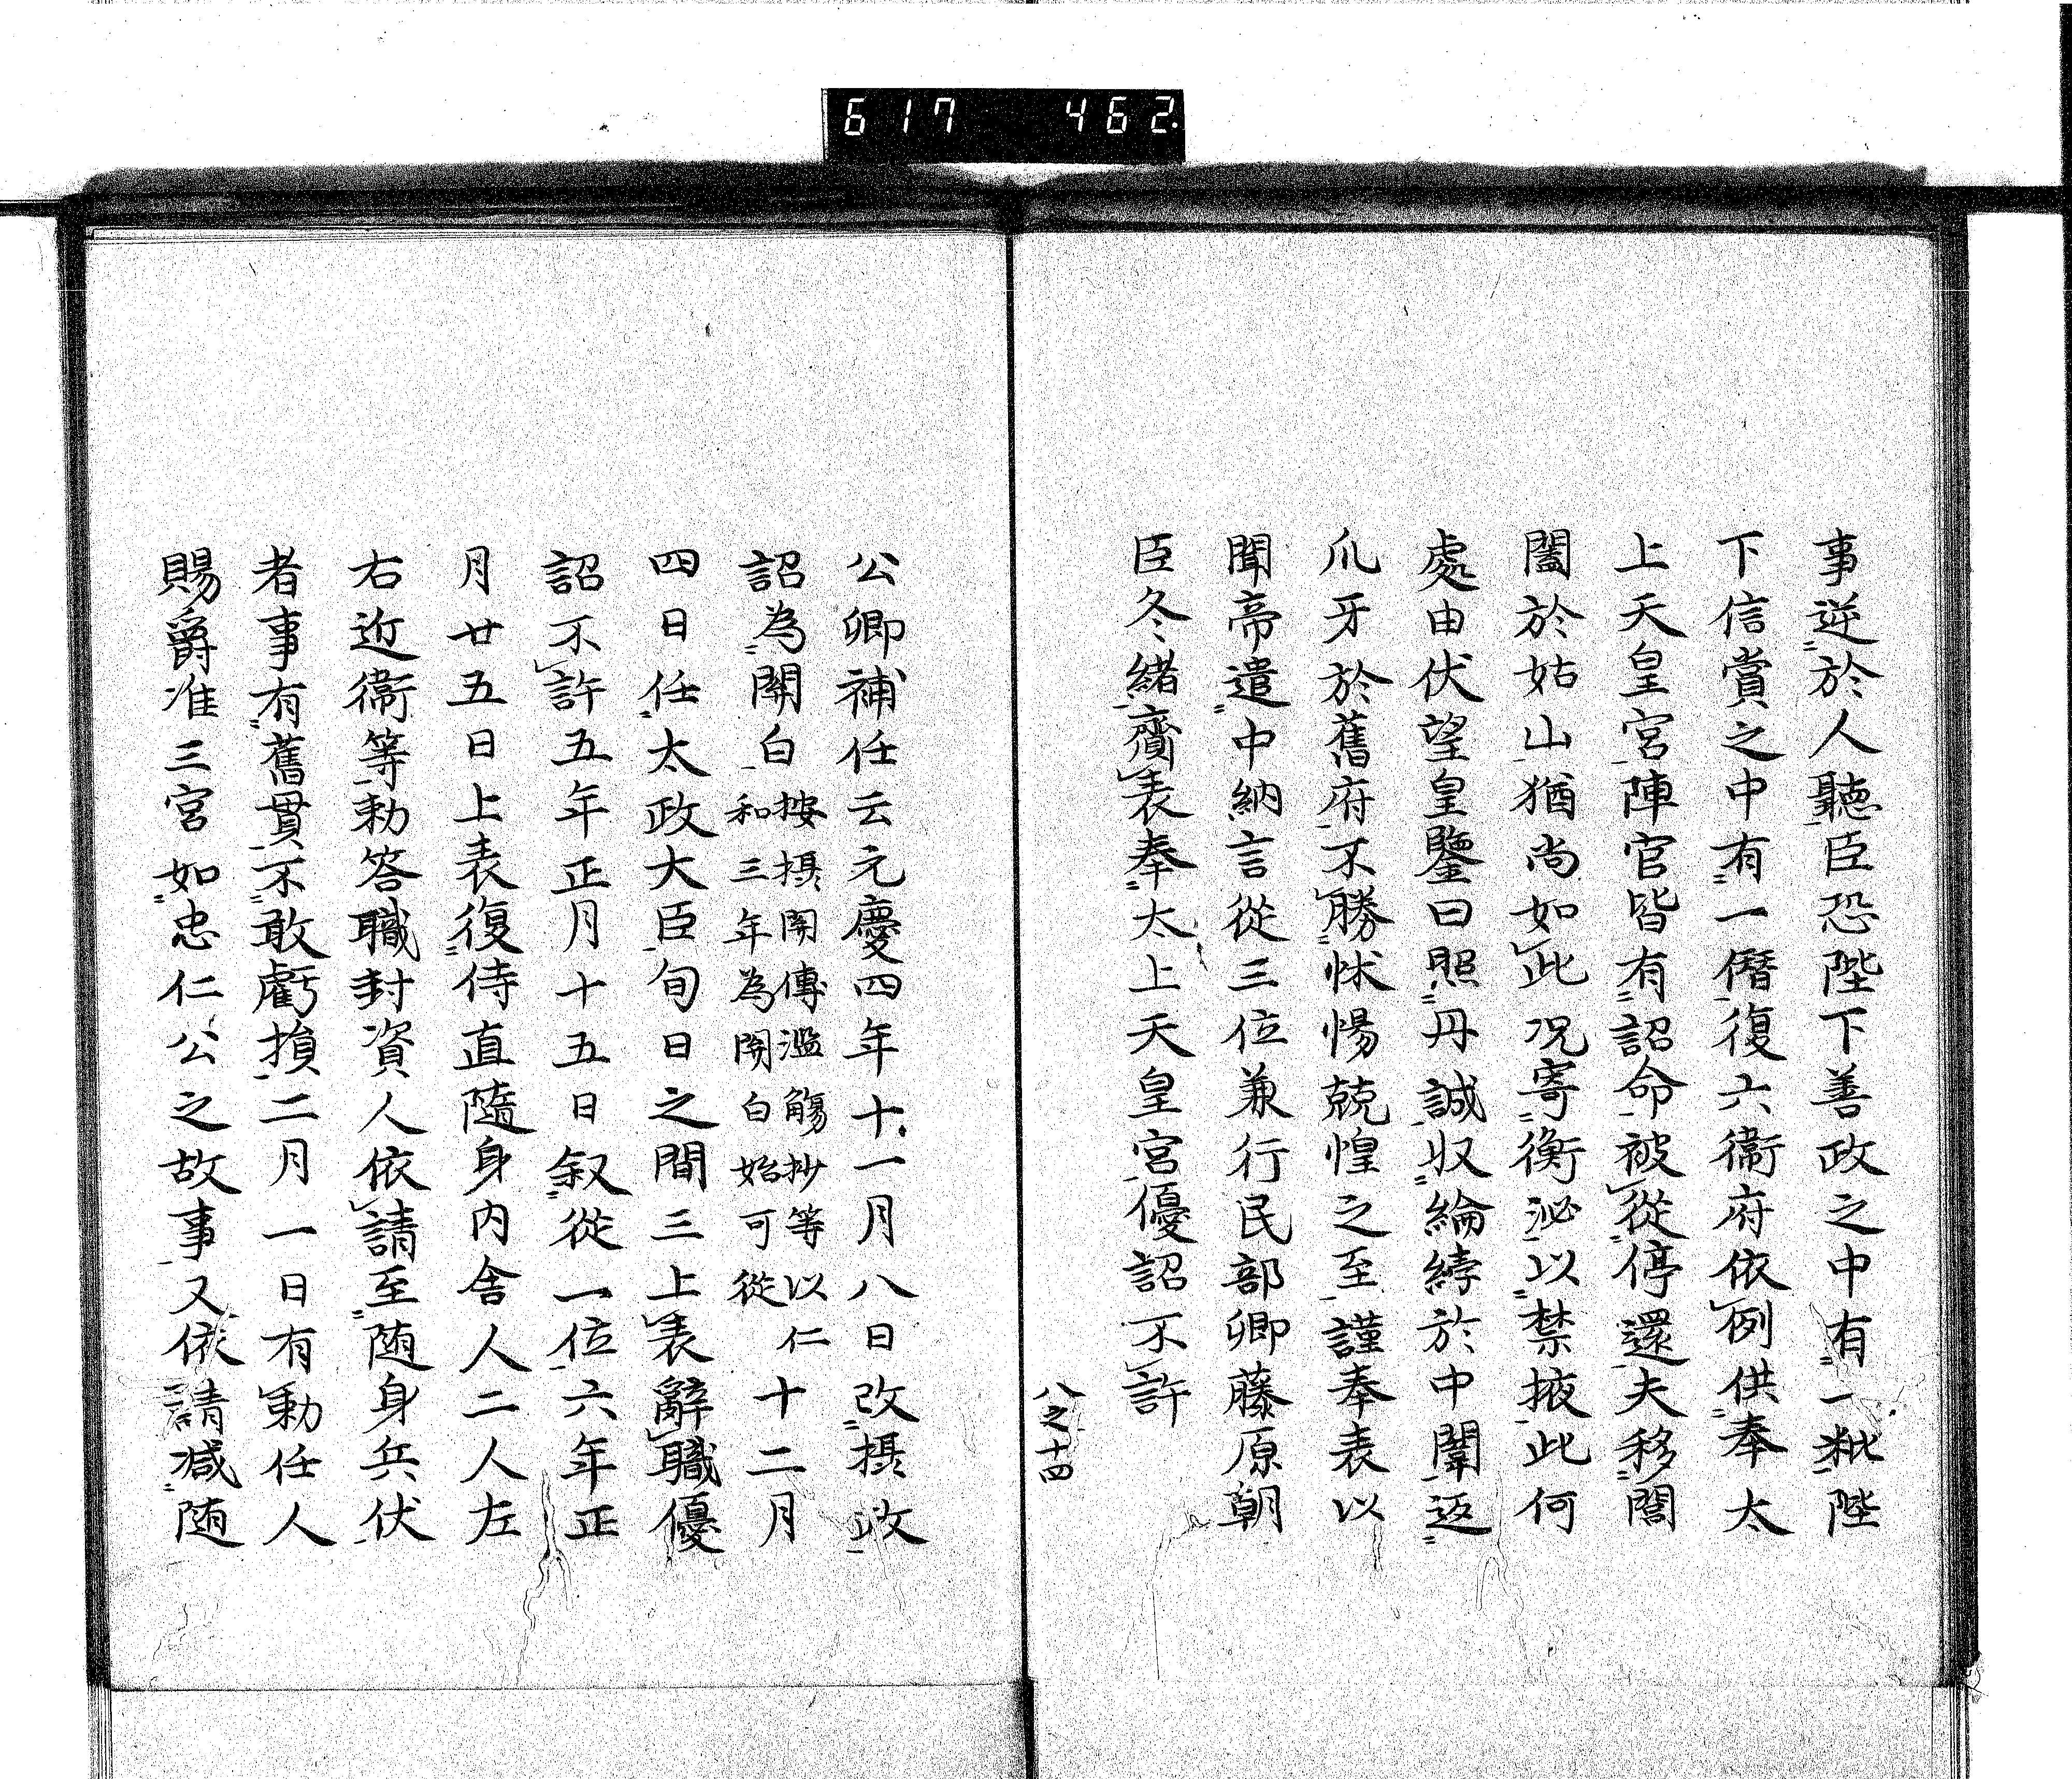 617 462
事逆於人聽臣恐陛下善政之中有一粃陛
下信賞之中有一僭復六衞府依例供奉太
上天皇宮陣官皆有詔命被從停還夫移閤
闔於姑山猶尚如此况寄衡泌以禁掖此何
處由伏望皇鑒曰照丹誠収綸綍於中闈返
爪牙於舊府不勝怵惕兢惶之至謹奉表以
聞帝遣中納言從三位兼行民部卿藤原朝
臣冬緒齎表奉太上天皇宮優詔不許
八之十四
公卿補任云元慶四年十一月八日改摂政
詔為関白按摂関傳濫觴抄等以仁和三年為関白始可從十二月
四日任太政大臣旬日之間三上表辭職優
詔不許五年正月十五日叙從一位六年正
月廿五日上表復侍直隨身内舎人二人左
右近衞等勅答職封資人依請至随身兵伏
者事有舊貫不敢虧損二月一日有勅任人
賜爵准三宮如忠仁公之故事又依請减随